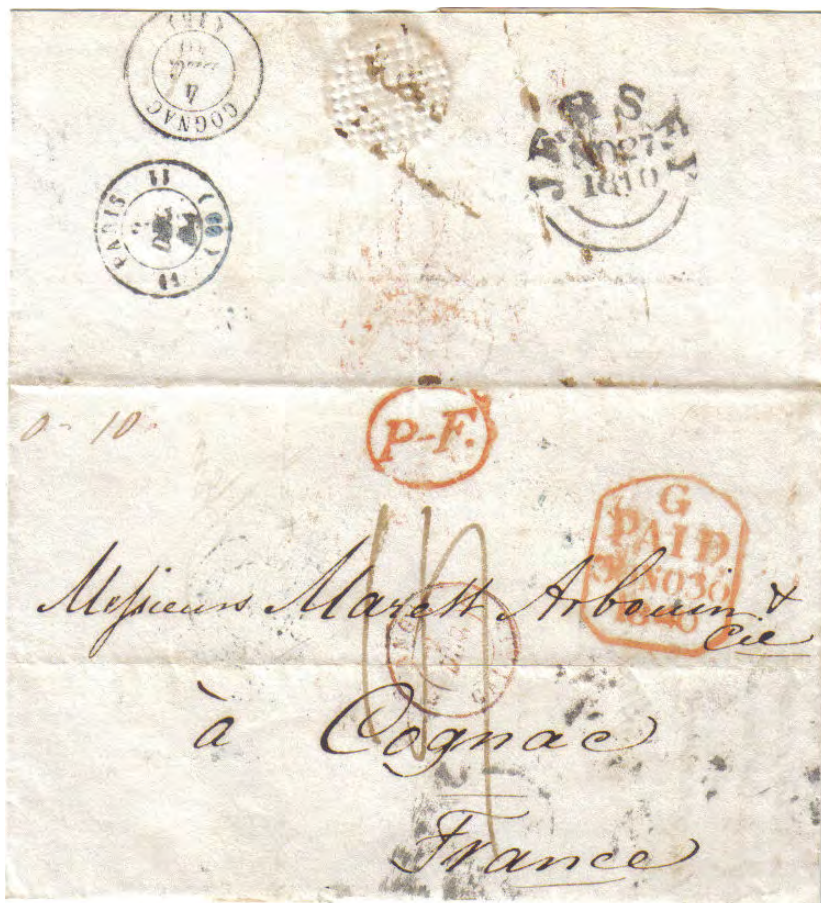 COGNAC
4
PARIS
11
JERSEY
NO 27
1840
0 - 10
P-F.
G
PAID
NO 30
1840
Messieurs Marett Arbouin &
Cie
à Cognac
France